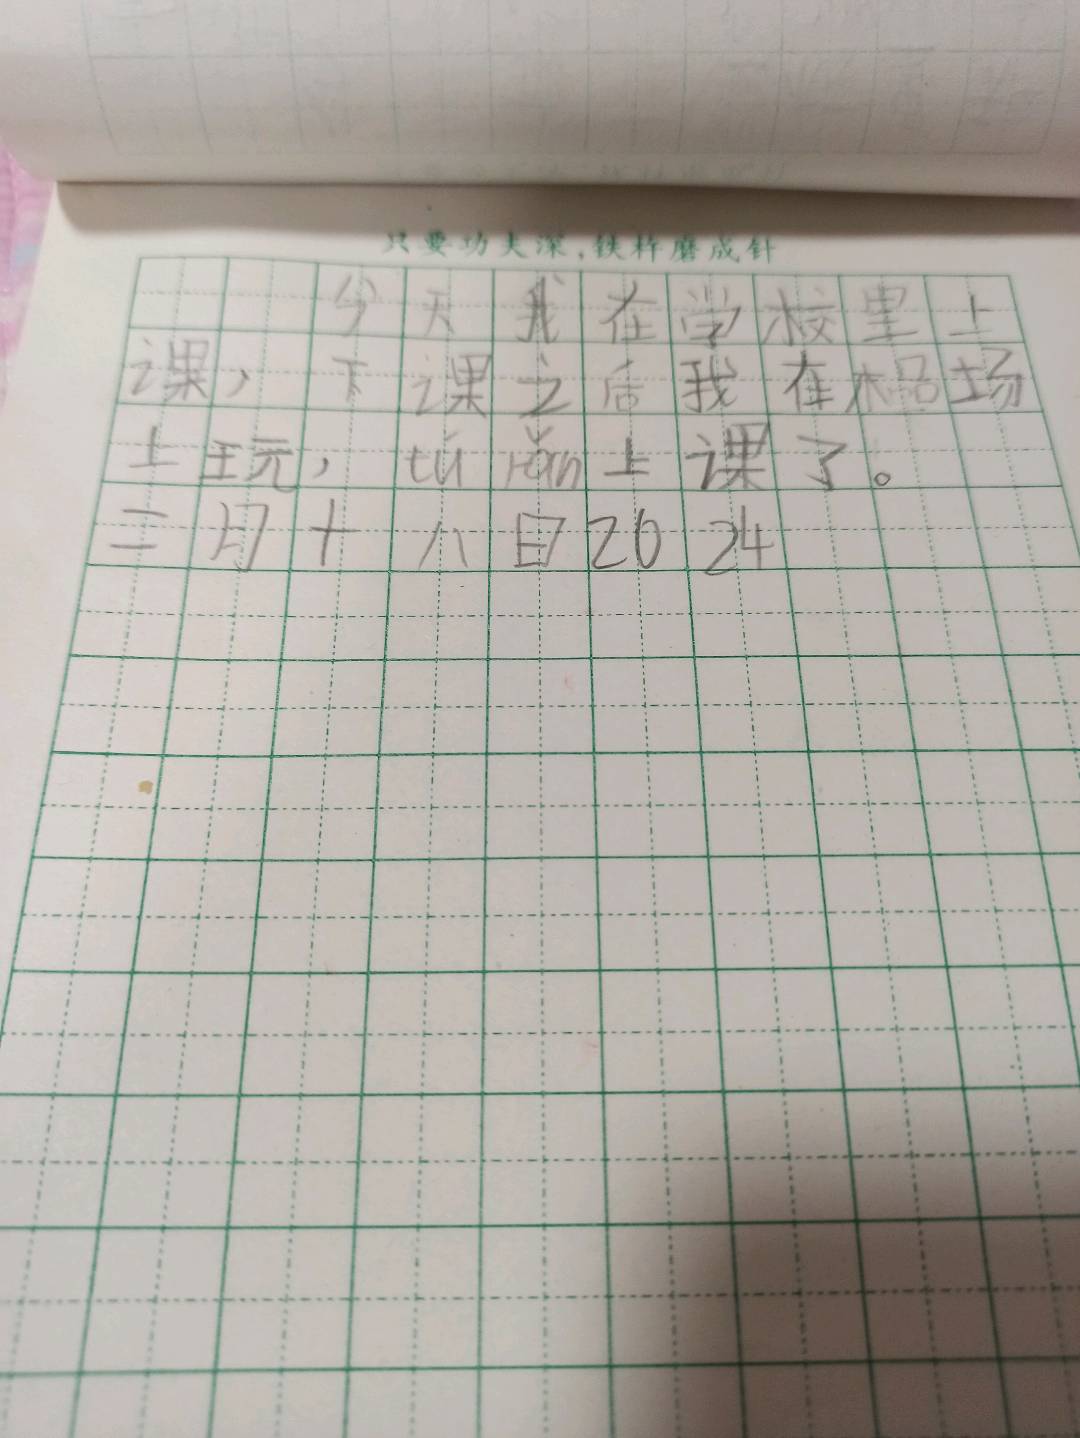 只要功夫深,铁杵磨成针
今天我在学校里上
课,下课之后我在操场
上玩,tú rǎn上课了。
二月十八日2024